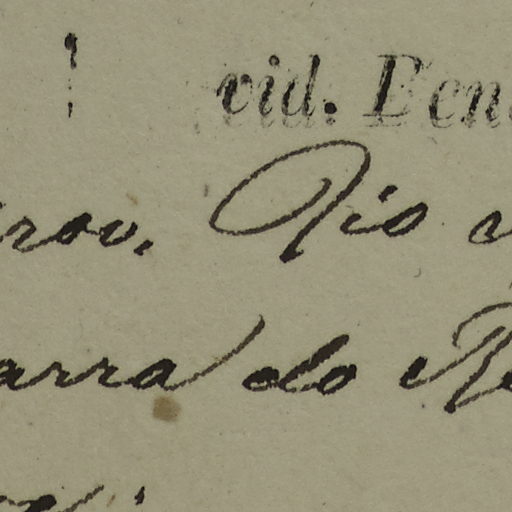 vid. Ben
rov. Rio
arra do R